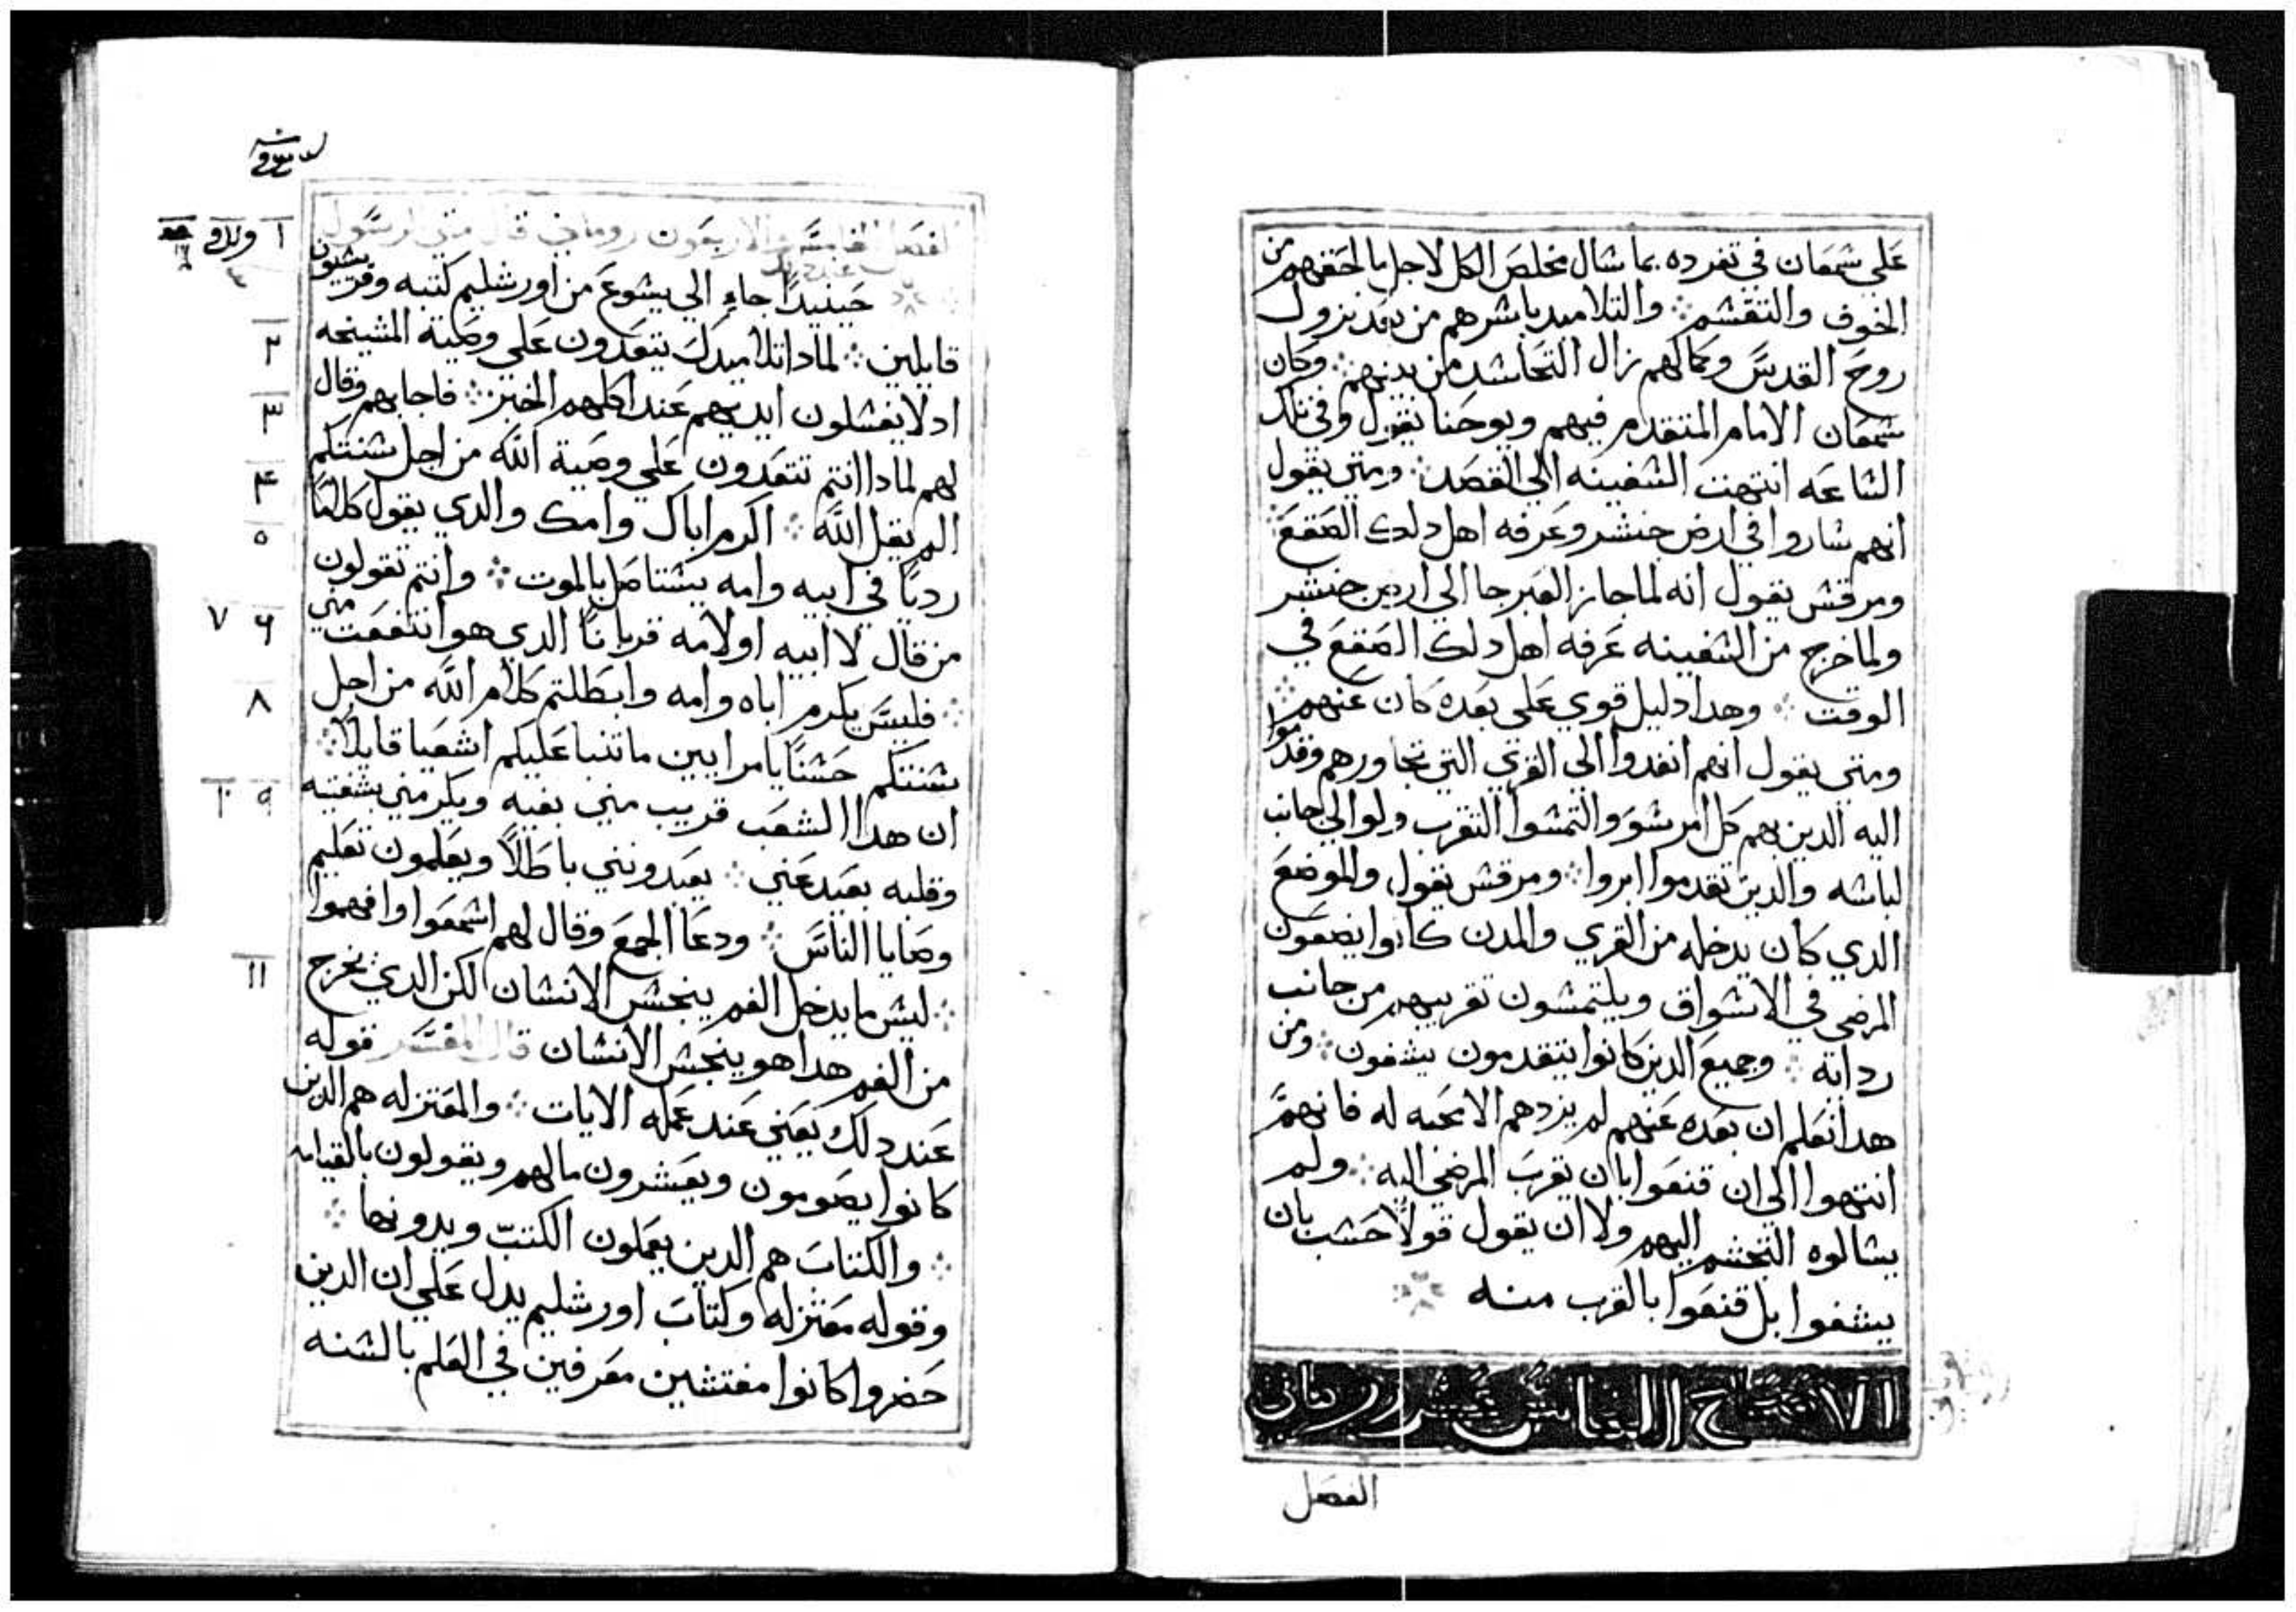 علي شمعان في تفرده بما شال مخلص الكل لاجل ما لحقهم من
الخوف والتقشم ܀ والتلاميد باشرهم من بعد نزول
روح القدس وكمالهم زال التحاشد من بينهم ܀ وكان
شمعان الامام المتقدم فيهم ويوحنا يقول وفي تلك
الشاعه انتهت الشفينه الي القصد ܀ ومتي يقول
انهم شاروا في ارض جنشر وعرفه اهل دلك الصقع ܀
ومرقش يقول انه لما جاز العبر جا الي ارض جنشر
ولما خرج من الشفينه عرفه اهل دلك الصقع في
الوقت ܀ وهدا دليل قوي علي بعده كان عنهم ܀
ومتي يقول انهم انفدوا الي القري التي تجاورهم وقدموا
اليه الدين بهم كل امر شو والتمشوا التقرب ولو الي جانب
لباشه والدين تقدموا ابروا ܀ ومرقش يقول والموضع
الدي كان يدخله من القري والمدن كانوا يضعون
المرضي في الاشواق ويلتمشون تقريبهم من جانب
ردايه ܀ وجميع الدين كانوا يتقدمون يشفون ܀ ومن
هدا نعلم ان بعده عنهم لم يزدهم الا محبه له فانهم
انتهوا الي ان قنعوا بان تقرب المرضي اليه ܀ ولم
يشالوه التجشم اليهم ولا ان يقول قولاً حشب بان
يشفوا بل قنعوا بالقرب منه
الاصحاح الخامش عشر روماني
الفصل
الفصل الخامس والاربعون روماني قال متي الرسول
حينيداً جاء الي يشوع من اورشليم كتبه وفريشيون
١
قايلين ܀ لمادا تلاميدك يتعدون علي وصية المشيخه
٢
اد لا يغشلون ايديهم عند اكلهم الخبز ܀ فاجابهم وقال
٣
لهم لمادا انتم تتعدون علي وصية الله من اجل شنتكم
٤
الم يقل الله ܀ اكرم اباك وامك والدي يقول كلاماً
٥
ردياً في ابيه وامه يشتاصل بالموت ܀ وانتم تقولون
من قال لا ابيه او لامه قرباناً الدي هو انتفعت مني
٦ ٧
܀ فليس يكرم اباه وامه وابطلتم كلام الله من اجل
٨
شنتكم حشناً يا مرايين ما تنبا عليكم اشعيا قايلاً ܀
ان هدا الشعب قريب مني بفيه ويكرمني بشفتيه
٩ ١٠
وقلبه بعيد عني ܀ يعبدونني باطلاً ويعلمون تعليم
وصايا الناس ܀ ودعا الجمع وقال لهم اشمعوا وافهموا
܀ ليش ما يدخل الفم ينجش الانشان لكن الدي يخرج
١١
من الفم هدا هو ينجش الانشان قال المفسر قوله
عند دلك يعني عند عمله الايات ܀ والمعتزله هم الدين
كانوا يصومون ويعشرون مالهم ويقولون بالقيامه
܀ والكتاب هم الدين يعملون الكتب ويدونها ܀
وقوله معتزله وكتاب اورشليم يدل علي ان الدين
حضروا كانوا مفتشين معرفين في العلم بالشنه